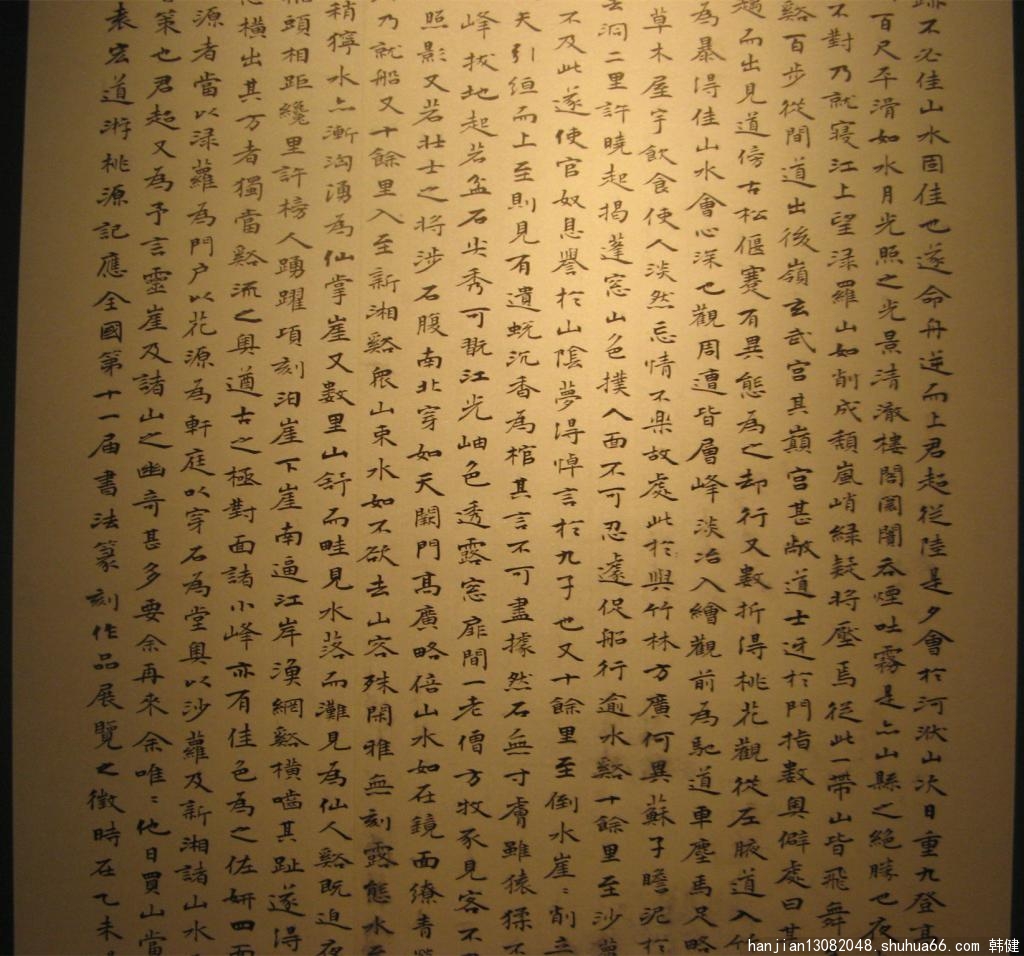 跡不必佳山水固佳也遂命舟逆而上君起從陸是夕會於河洑山次日重九登高
百尺平滑如水月光照之光景清澈樓閣闤闠吞煙吐霧是亦山縣之絕勝也夜
不對乃就寢江上望淥羅山如削成頹嵐峭綠疑將壓焉從此一帶山皆飛舞
谿百步從間道出後嶺玄武宮其巔宮甚敞道士迓於門指數奧僻處曰其
趨而出見道傍古松偃蹇有異態為之却行又數折得桃花觀從左腋道入竹
為暴得佳山水會心深也觀周遭皆層峰淡冶入繪觀前為馳道車塵馬足略
草木屋宇飲食使人淡然忘情不樂故處此於與竹林方廣何異蘇子瞻泥於
去洞二里許曉起揭蓬窓山色撲入面不可忍遽促船行逾水谿十餘里至沙蘿
不及此遂使官奴息譽於山陰夢得悼言於九子也又十餘里至倒水崖〻削立
天引絙而上至則見有遺蛻沉香為棺其言不可盡據然石無寸膚雖猿猱不
峰拔地起若盆石尖秀可翫江光岫色透露窓扉間一老僧方牧豕見客不
照影又若壯士之將涉石腹南北穿如天闕門髙廣略倍山水如在鏡面繚青
乃就船又十餘里入至新湘谿眾山束水如不欲去山容殊閑雅無刻露態水至
稍獰水亦漸洶湧為仙掌崖又數里山舒而畦見水落而灘見為仙人谿既迫夜
頭相距纔里許榜人踴躍頃刻泊崖下崖南逼江岸漁網谿橫嚙其趾遂得
橫出其方者獨當谿流之奧遒古之極對面諸小峰亦有佳色為之佐妍四面
源者當以淥蘿為門户以花源為軒庭以穿石為堂奧以沙蘿及新湘諸山水
策也君起又為予言靈崖及諸山之幽奇甚多要余再來余唯〻他日買山當
袁宏道游桃源記應全國第十一届書法篆刻作品展覽之徵時在乙未
hanjian13082048.shuhua66.com 韩健